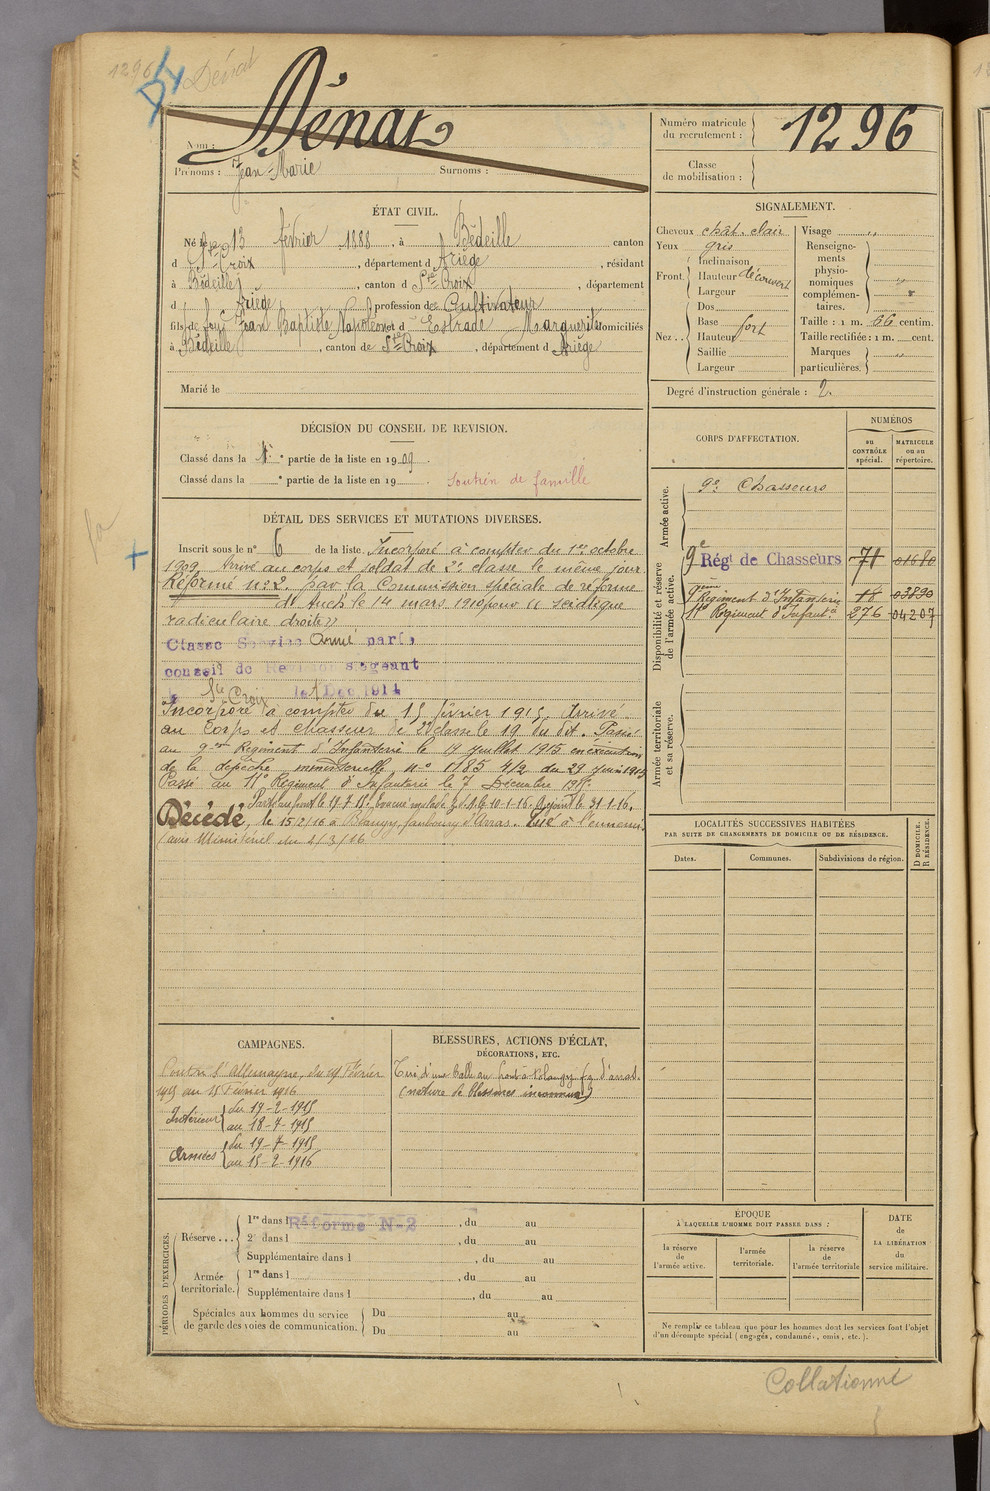 1296
Dénat
Dénat
Nom :
Prénoms : Jean-Marie Surnoms :
Numéro matricule du recrutement : 1296
Classe de mobilisation :
ÉTAT CIVIL.
Né le 13 février 1888, à Bédeille canton
d Ste Croix, département d Ariège, résidant
à Bédeille, canton d Ste Croix, département
d Ariège, profession de Cultivateur
fils de feu Jean Baptiste Napoléon et d Estrade Marguerite domiciliés
à Bédeille, canton de Ste Croix, département d Ariège
Marié le
SIGNALEMENT.
Cheveux chât. clair
Yeux gris
Front. Inclinaison
Hauteur découvert
Largeur
Nez.. Dos
Base fort
Hauteur
Saillie
Largeur
Visage "
Renseignements physionomiques complémentaires. "
Taille : 1 m. 66 centim.
Taille rectifiée : 1 m. cent.
Marques particulières. "
Degré d'instruction générale : 2.
DÉCISION DU CONSEIL DE REVISION.
Classé dans la 1e partie de la liste en 1909.
Classé dans la e partie de la liste en 19 . soutien de famille
DÉTAIL DES SERVICES ET MUTATIONS DIVERSES.
Inscrit sous le n° 6 de la liste. Incorporé à compter du 1er octobre
1909. Arrivé au corps et soldat de 2e classe le même jour
Réformé n° 2 par la Commission spéciale de réforme
de Auch le 14 mars 1910 pour "sciatique
radiculaire droite"
Classé Service Armé par le
conseil de Révision siégeant
à Ste Croix le 1 Dec 1914
Incorporé à compter du 15 février 1915. Arrivé
au Corps et chasseur de 2e classe le 19 du dit. Passé
au 9me Régiment d'Infanterie le 14 juillet 1915 en exécution
de la dépêche ministerielle n° 1185 4/2 du 29 juin 1915
Passé au 11e Régiment d'Infanterie le 7 Décembre 1915.
Parti au front le 19.7.15. Evacué malade le 10-1-16. Rejoint le 31-1-16.
Décédé, le 15/2/16 à Blangy, faubourg d'Arras. Tué à l'ennemi.
(avis Ministériel du 4/3/16
CORPS D'AFFECTATION.
NUMÉROS
au CONTRÔLE spécial.
MATRICULE ou au répertoire.
Armée active.
9e Chasseurs
Disponibilité et réserve de l'armée active.
9e Régt de Chasseurs 71 01680
9ème Régiment d'Infanterie 18 03890
11e Régiment d'Infante 276 04207
Armée territoriale et sa réserve.
LOCALITÉS SUCCESSIVES HABITÉES
PAR SUITE DE CHANGEMENTS DE DOMICILE OU DE RÉSIDENCE.
Dates. Communes. Subdivisions de région.
D DOMICILE.
R RÉSIDENCE.
CAMPAGNES.
Contre l'Allemagne, du 19 Février
1915 au 15 Février 1916
Intérieur du 19-2-1915
au 18-7-1915
Armées du 19-7-1915
au 15-2-1916
BLESSURES, ACTIONS D'ÉCLAT,
DÉCORATIONS, ETC.
Tué d'une balle au front à Blangy fg d'arras.
(nature de blessures inconnue)
PÉRIODES D'EXERCICES.
Réserve... 1re dans l Réforme N-2, du au
2e dans l , du au
Supplémentaire dans l , du au
Armée territoriale. 1re dans l , du au
Supplémentaire dans l , du au
Spéciales aux hommes du service de garde des voies de communication. Du au
Du au
ÉPOQUE
À LAQUELLE L'HOMME DOIT PASSER DANS :
la réserve de l'armée active.
l'armée territoriale.
la réserve de l'armée territoriale
DATE de LA LIBÉRATION du service militaire.
Ne remplir ce tableau que pour les hommes dont les services font l'objet
d'un décompte spécial (engagés, condamnés, omis, etc.).
Collationné